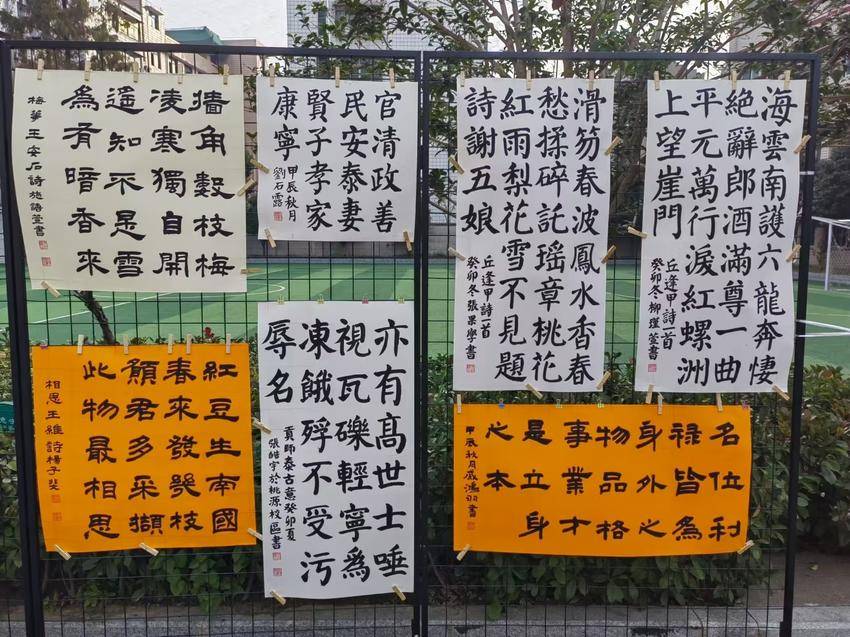 墙角數枝梅
凌寒獨自開
遥知不是雪
為有暗香來
梅華王安石詩施語萱書
官清政善
民安泰妻
賢子孝家
康寧
甲辰秋月
劉石露
滑笏春波鳳水香春
愁揉碎託瑶章桃花
紅雨梨花雪不見題
詩謝五娘
丘逢甲詩一首
癸卯冬張果學書
海雲南護六龍奔悽
絶辭郎酒滿尊一曲
平元萬行淚紅螺洲
上望崖門
丘逢甲詩一首
癸卯冬柳瑾萱書
紅豆生南國
春來發幾枝
願君多采擷
此物最相思
相思王維詩楊子斐
亦有髙世士唾
視瓦礫輕寧為
凍餓殍不受污
辱名
貢師泰古意癸卯夏
張皓宇於桃源校區書
名位利
禄皆為
身外心
物品格
事業才
是立身
心本
甲辰秋月戚鴻羽書